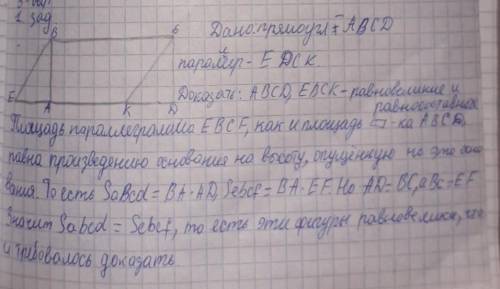 1 зад
B
б
E
A
K
D
Дано: прямоуг. ABCD
и
EDCK
Доказать: ABCD, EBCK - равновеликие и
равносоставные
Площадь параллеграмма EBCF, как и площадь ▭-ка ABCD,
равна произведению основания на высоту, опущенную на это осно
вания. То есть SaBcd = BA · AD, Sebcf = BA · EF. Но AD = BC, а BC = EF
Значит Sabcd = Sebcf, то есть эти фигуры равновелики, что
и требовалось доказать